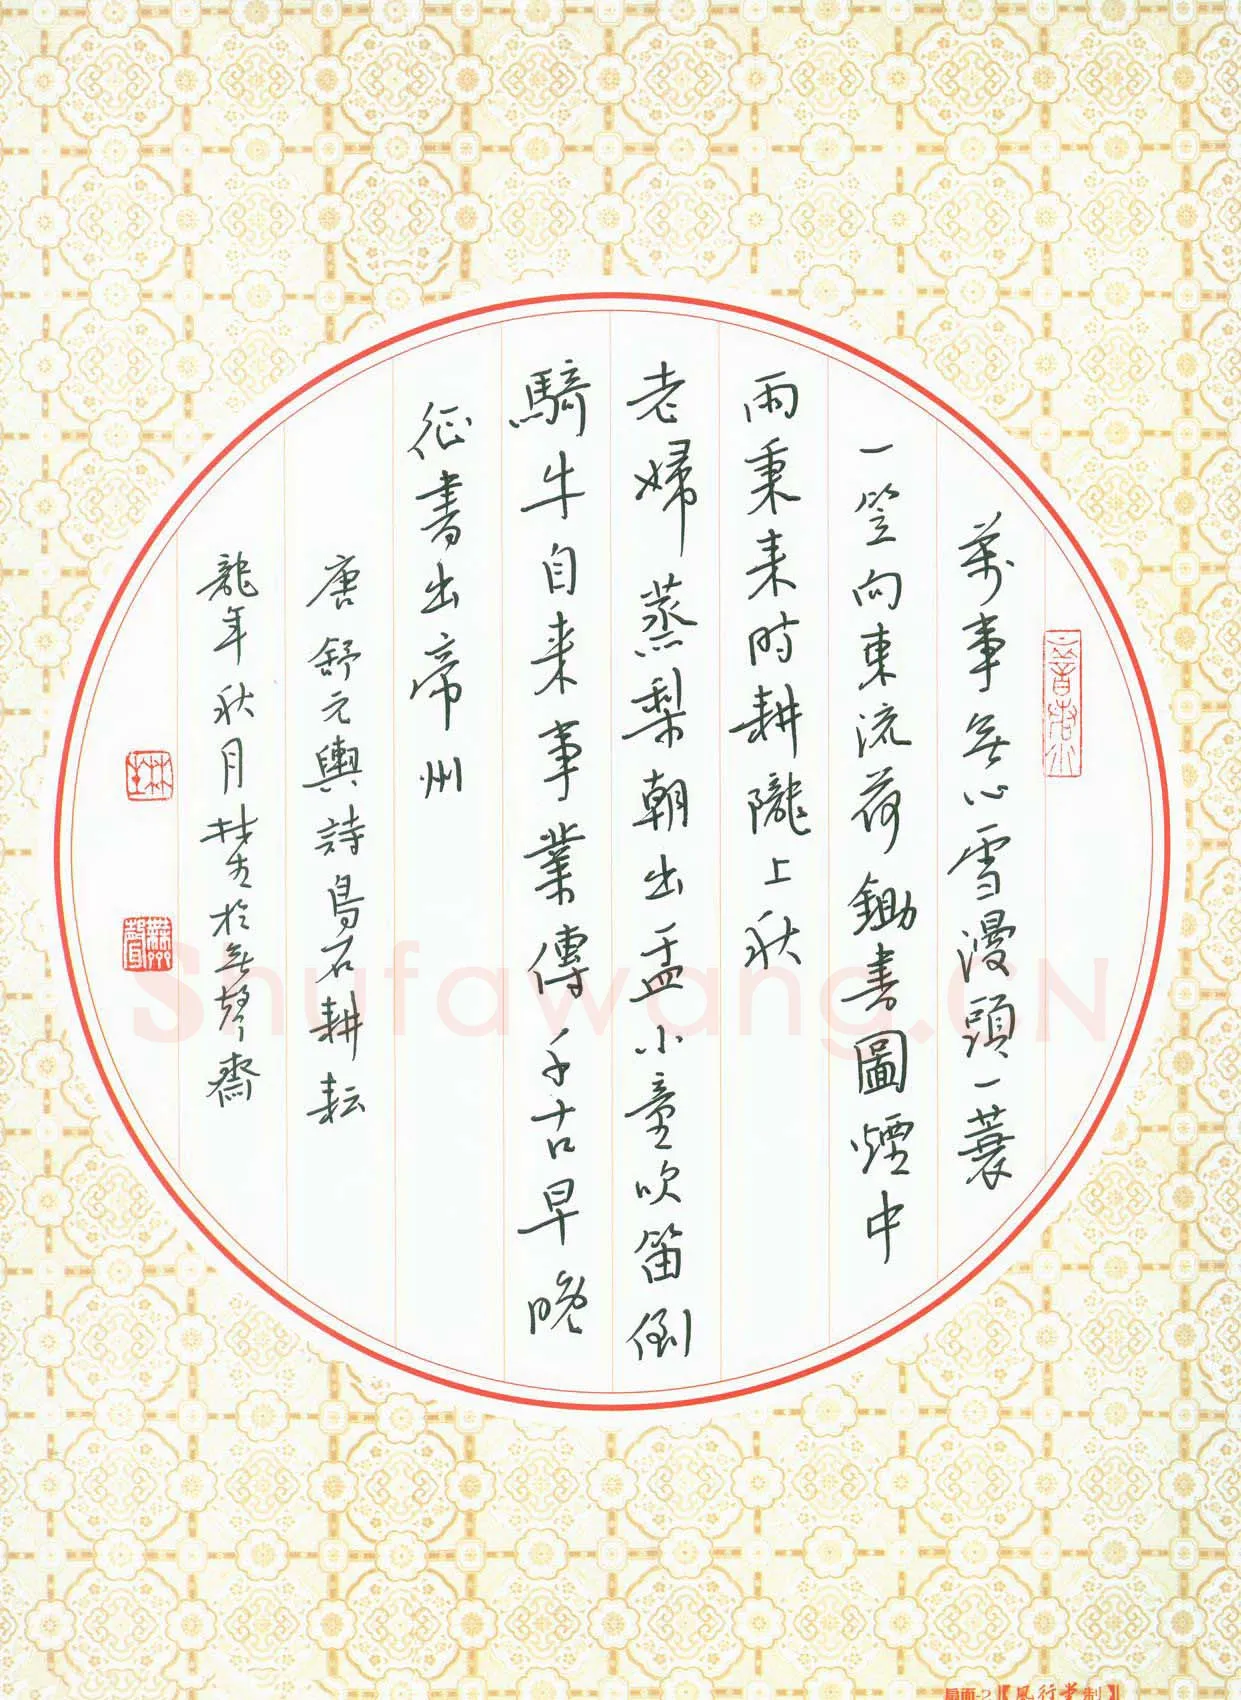 萬事無心雪漫頭一蓑
一笠向東流荷鋤書圖煙中
雨秉耒時耕隴上秋
老婦蒸梨朝出盂小童吹笛倒
騎牛自来事業傳千古早晚
征書出帝州
唐舒元輿詩鳥石耕耘
龍年秋月林書於無聲齋
Shufawang.CN
扇面-2【風行堂制】